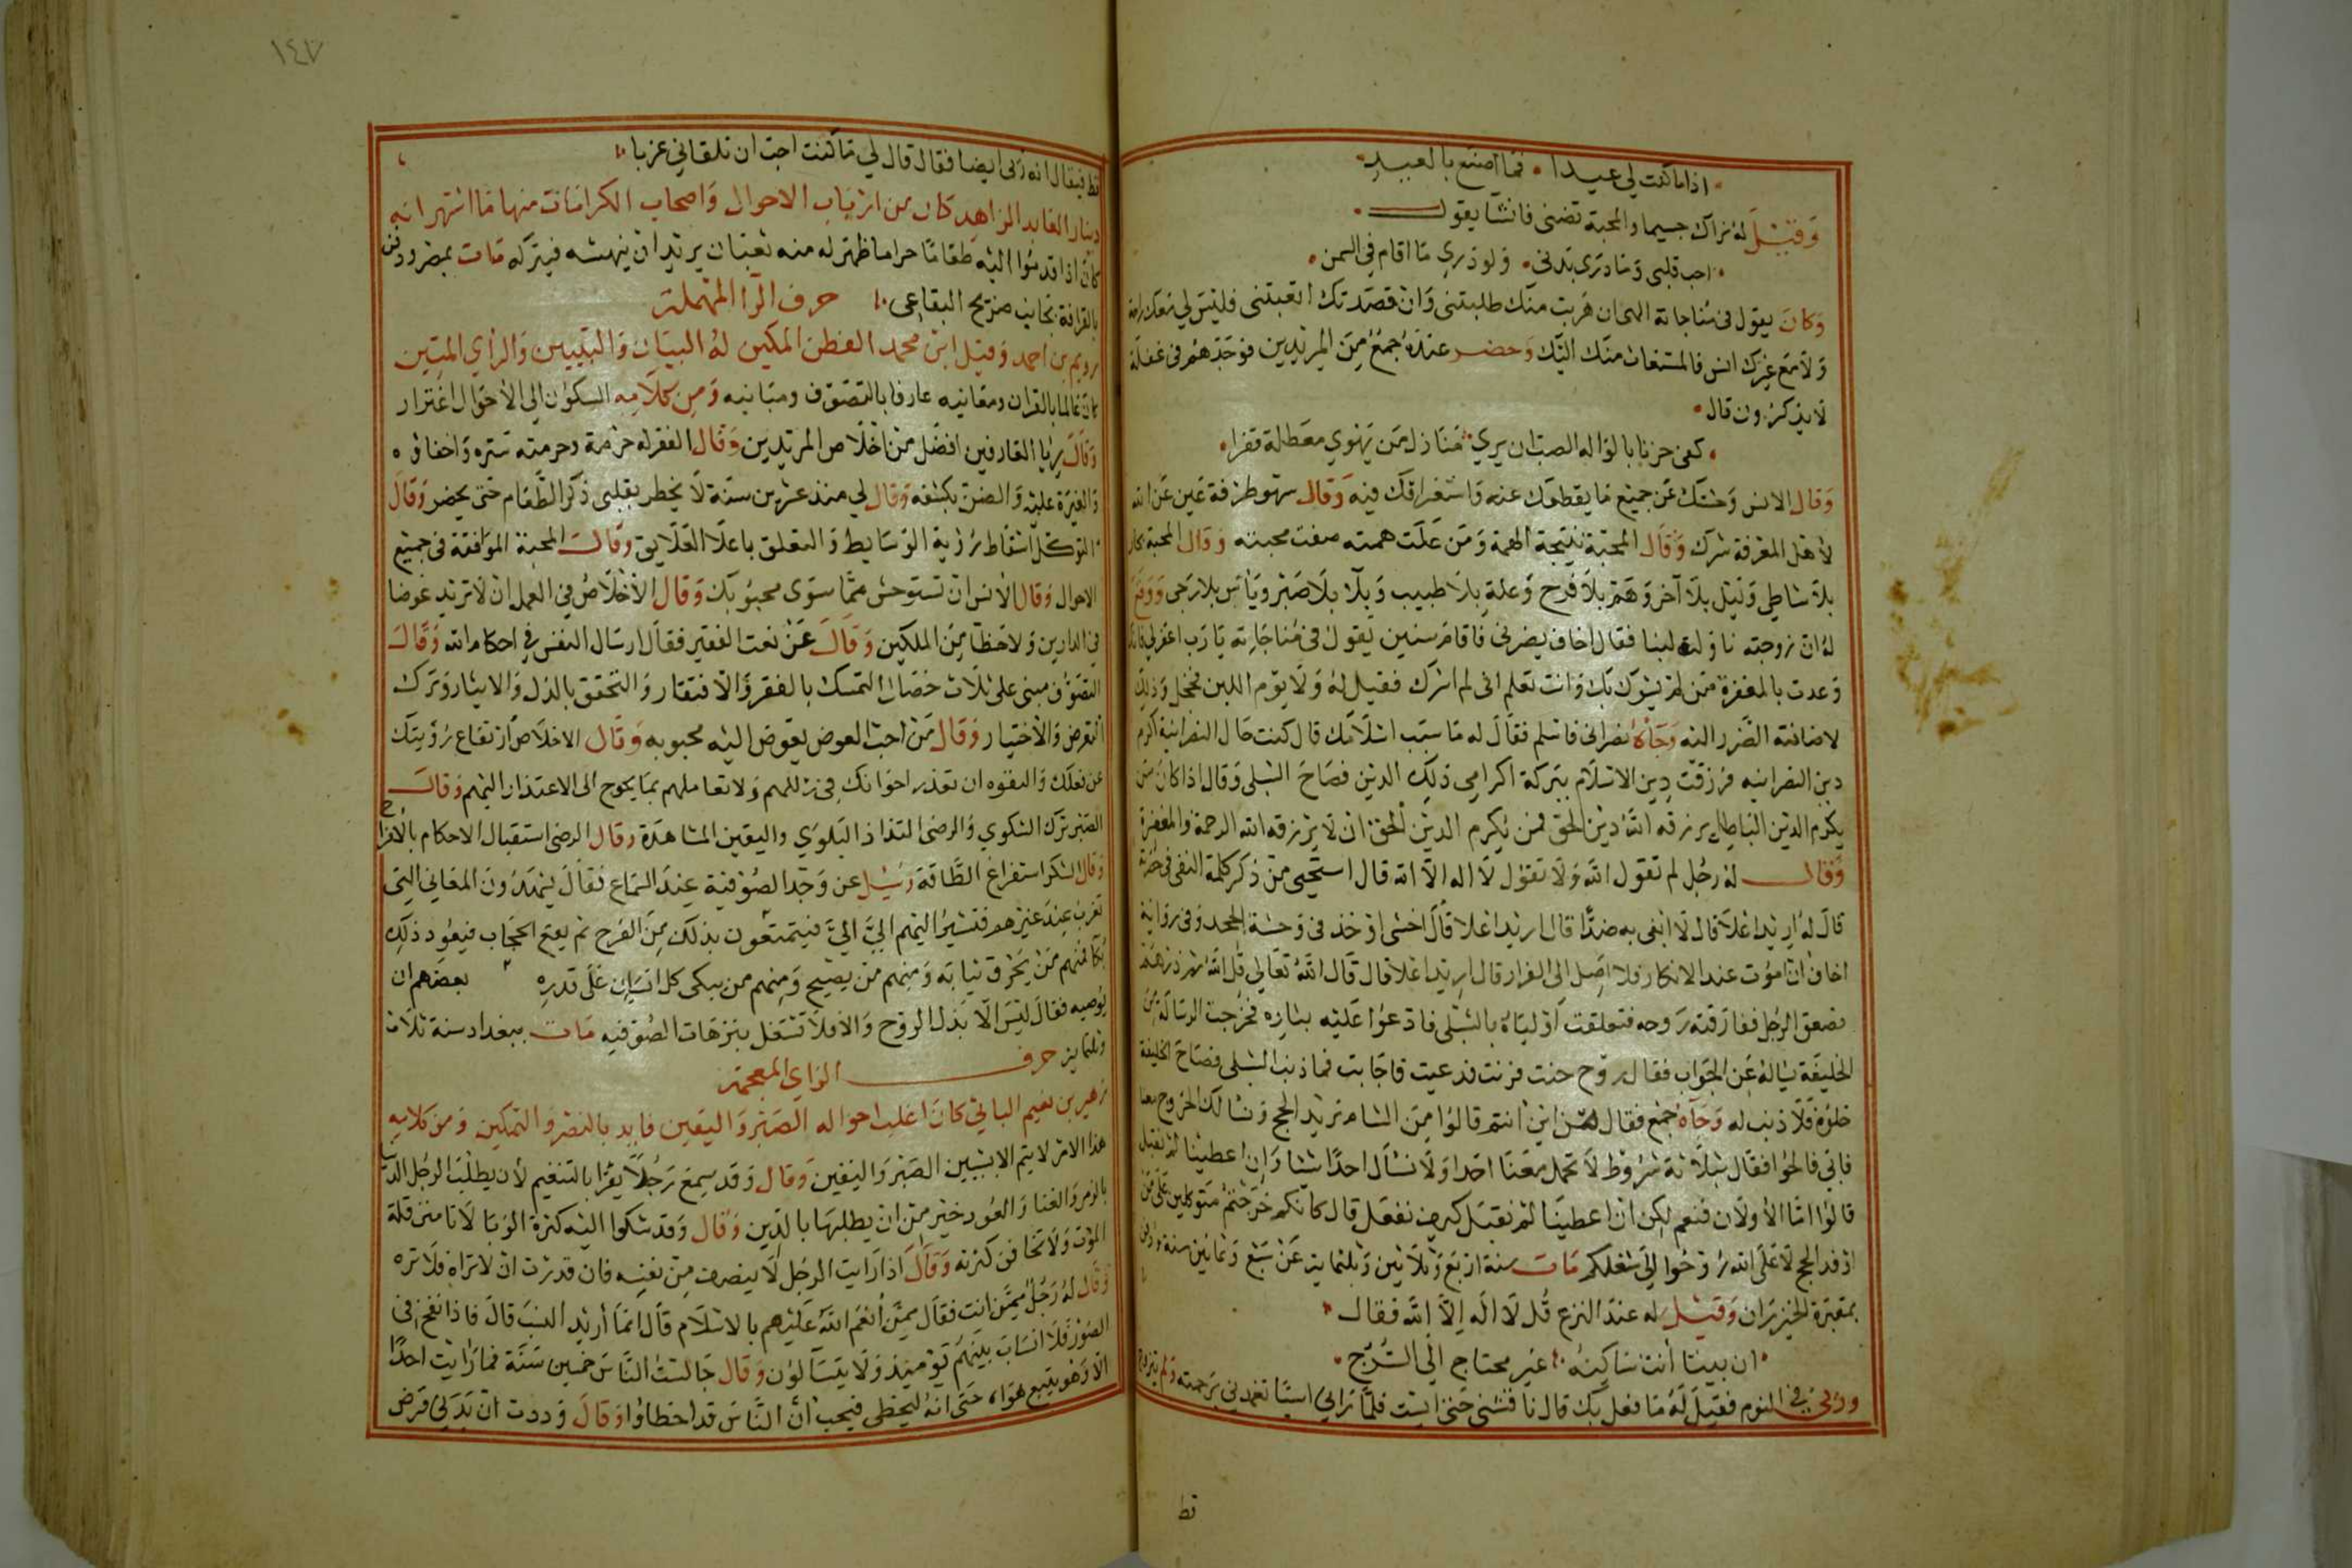 اذا ما كنت لي عيدا • فما اصنع بالعيد
وَقيْلَ له نراك جسيما والمحبة تضنى فانشأ يقول
احب قلبى وَما درى بدنى • وَلو درى مَا اقام فى السمن
وَكانَ يقول فى مُناجاته الهى ان هَربت منك طلبتنى وَان قصَدتك اتعبتنى فليسَ لي مَعك راحة
وَلا مَع غيرك انس فالمستغاث منك اليَك وَحضر عندَهُ جمعٌ مِنَ المرُيدين فوَجَدهم فى غفلة
لا يذكرُون قال
كفى حزنا بالوَاله الصب ان يرى • مَنازل مَن يَهوى معَطلة قفرا
وَقال الانس وَحشتك عَن جميع مَا يقطعك عنه وَاستغراقك فيه وَقال سهو طرفة عَين عَن الله
لأهل المعرفة شرك وَقال المحَبّة نتيجة الهمة وَمَن عَلَت همته صفت محبته وَقال المحبة بحار
بلا شاطي وَليْل بلا آخر وَهَمّ بلا فرح وَعلة بلا طبيب وَبلاَ بلا صَبر وَيَاس بلا رَجى وَوقع
له ان زوجته ناوَلته لبنا فقال اخاف يضرنى فاقامَ سنين يقول فى مُناجَاته يا رَب اغفر لي فانك
وَعدت بالمغفرة مَن لم يشرك بك وَانت تعلم انى لم اشرك فقيل له وَلا يوم اللبن فخجل وَذلك
لاضافته الضَّرر اليه وَجَاءهُ نصرانى فاسلم فقالَ له مَا سبَب اسْلامك قال كنت حَال النصرانية اكرم
دين النصرانيه فرُزقت دِين الاسْلام ببَركة اكرامي ذلك الدين فصَاحَ الشبلى وَقال اذا كانَ مَن
يكرم الدين البَاطل يرزقه اللهُ دينَ الحق فمن يُكرم الدين الحق ان لا يَرزقه الله الرحمة والمغفرة
وَقال لهُ رجُل لم تقول الله وَلا تقول لا اله الا الله قال استَحيى من ذكر كلمة النفى فى حضرة
قالَ لهُ اريد اعْلا قال لا انفى به ضدًا قال اريد اعلا قال اخشى اوْخذ فى وَحشة الجحد وَفى روَاية
اخاف ان امُوت عند الانكار فلا اصِل الى الاقرار قال اريد اعْلا قال قالَ اللهُ تعَالى قل اللهُ ثم ذرهم
فصعق الرجُل ففارَقته رَوحه فتعلقت اوْليَاءه بالشبْلى فادعوُا عَليْه بثاره فخرجت الرسَالة من
الخليفة يسَاله عَن الجوَاب فقال روْح حنت فرنت فدعيت فاجَابت فما ذنب الشبلى فصَاحَ الخليفة
خلوُه فلا ذنب له وَجَاءهُ جمْع فقال من اين انتم قالوُا مِنَ الشام نريْد الحج وَنسَالك الخروُج معنا
فابى فالحوُا فقال بثلاثة شروُط لا نحمل معَنا احَدا وَلا نسْأل احدًا شيئا وَان اعطينا لم نقبل
قالوُا امّا الأوْلان فنعم لكِن ان اعطينَا لمْ نقبَل كيف نفعَل قال كانكم خَرَجتم متوكلين عَلى مَن
اذ فد الحج لا عَلى الله رُوحُوا الى شغلكم مَات سنة اربَع وَثلاثين وَثلثماية عَنْ سَبْع وَثمانين سنة وَدفن
بمقبَرة الخيزرَان وَقيْل له عندَ النزع قُل لا اله اِلاّ الله فقال
ان بيتا أنت ساكِنهُ • غيرَ محتاج الى السُرج
وَرئى فى النوم فقيلَ لَهُ مَا فعل بك قال ناقشنى حتى ايست فلمّا رَانى ايسًا تغمدنى برَحمته وَلم يتزوج
قط
١٤٧
قط فيقال انه رئى ايضا فقال قال لي مَا كنت احب ان تلقاني عزبا
دينار العَابد الزاهِد كان من ارْبَاب الاحوال وَاصحاب الكرامَات منها مَا اشتهر انه
كانَ اذا قدمُوا اليْه طعَامًا حراما ظهر له منه ثعبَان يريْد ان ينهشه فيترَكه مَات بمصر ودفن
بالقرافة بجانب ضريح البقاعى حرف الرَا المهملة
رويم بن احمد وَقيل ابن محمد الفطن المكين له البيَان وَالتبيين وَالرأي المتين
كان عَالما بالقران وَمعَانيه عارفا بالتصَوف ومبَانيه وَمِن كلامِه السكوُن الى الأحوَال اغترار
وَقالَ رِيا العَارفين افضَل من اخلاص المريْدين وَقال الفقر له حرْمة وحرمته سَتره وَاخفاؤه
وَالغيرة عليْه وَالضن بكشفه وَقال لي منذ عشرين سَنة لا يخطر بقلبى ذكر الطَّعَام حتى يحضر وَقالَ
التوكل اسْقاط رُؤية الوَسَايط وَالتعلق باعلا العَلايق وَقال المحَبة الموَافقة فى جميْع
الاحوال وَقال الأنس ان تسْتوحش ممَّا سوَى محبوُبك وَقال الأخلاص فى العمل ان لا ترُيد عوَضا
فى الدارين وَلا حَظا مِنَ الملكين وَقالَ عَن نعت الفقير فقال ارسَال النفس فى احكام الله وَقالَ
التصَوُّف مبنى على ثلاث خصَال التمسك بالفقر وَالافتقار وَالتحقق بالبذل وَالايثار وَترك
التعرض وَالاختيَار وَقال مَن احب العوض بغوض اليْه محبوبه وَقال الاخلاص ارتفاع رُؤيتك
عن فعلك وَالفتوه ان تعذر اخوَانك فى زللهم وَلا تعَاملهم بما يحوج الى الاعتذار اليهم وَقالَ
الصَبر ترك الشكوي وَالرضى التذاذ البَلوَي وَاليقين المشاهدَة وَقال الرضى استقبال الاحكام بالافراح
وَقال الشكر استفراغ الطَّاقة وَسُيل عن وَجد الصُوفية عندَ السَمَاع فقالَ يشهَدُونَ المعَانى التى
تعزب عنِدَ غيرهم فتشيرُ اليهم الىَّ الىَّ فيتمتعُون بذلك مِنَ الفرح ثم يقع الحجَاب فيعوُد ذلك
بكاً فمنهم مَن يَخرق ثيَابه وَمنِهم من يصيْح وَمِنهم من يبكى كل انسَان عَلى قدرِه بعضهم ان
يوُصيه فقالَ ليْسَ الا بَذل الروْح وَالا فلا تشتغل بترهَات الصُوفيه مَات ببغداد سنة ثلاث
وَثلثماية حرف الزاي المعجمة
زهير بن نعيم البابى كانَ اغلب احواله الصَبر وَاليقين فايد بالنصْر وَالتمكين وَمن كلامِه
هذا الامْر لا يتم الا بشيئين الصَبر وَاليَقين وَقال وَقد سَمِعَ رَجُلاً يقرَا بالتنغيم لأن يطلبَ الرجُل الدنيا
بالزمر وَالغنا وَالعُود خير مِن ان يطلبهَا بالدِين وَقال وَقد شكوا اليْه كثرة الوبَا لانا من قلة
الموْت وَلا نخاف من كثرته وَقالَ اذا رَايت الرجُل لا ينصف مِن نفسِه فان قدرْت ان لا ترَاه فلا ترَه
وَقال لهُ رَجُل ممَّن انت فقالَ ممّن أنعَم اللهُ عَليْهم بالاسْلام قالَ انمَا اريْد النسَب قالَ فاذا نفخ فى
الصُوْر فلا انسَابَ بيْنهُم يَوْمئِذ وَلا يتسَآلوُن وَقال جَالست النَّاس خمسين سَنة فمارَايت احدًا
الا وَهوَ يتبع هوَاه حتى انهُ ليخطى فيحب انَّ النَّاسَ قد اخطاوُا وَقالَ وَددت ان بَدَنى قرض